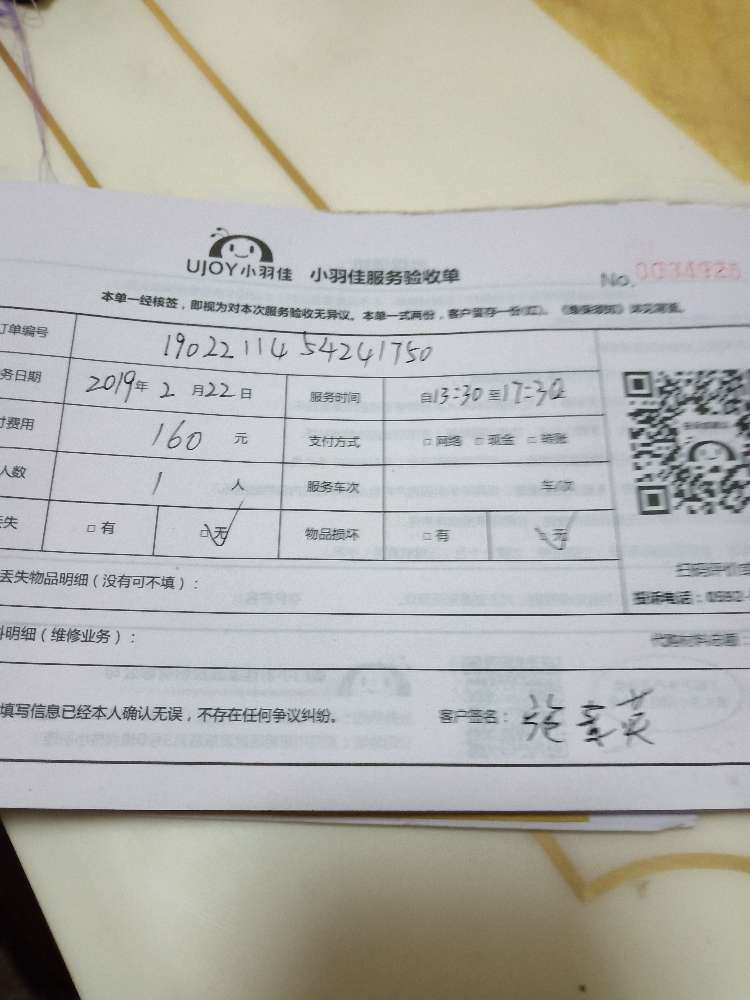 UJOY小羽佳 小羽佳服务验收单 No.
本单一经核签，即视为对本次服务验收无异议。本单一式两份，客户留存一份(红)。
订单编号 19022114 54241750
务日期 2019年 2 月 22 日 服务时间 自13:30 至17:30
付费用 160 元 支付方式 □ 网络 □ 现金 □ 转账
人数 1 人 服务车次 车/次
丢失 □ 有 □ 无 物品损坏 □ 有 □ 无
扫码评价
丢失物品明细（没有可不填）： 投诉电话：0592-
料明细（维修业务）： 代购材料总额：
填写信息已经本人确认无误，不存在任何争议纠纷。 客户签名：